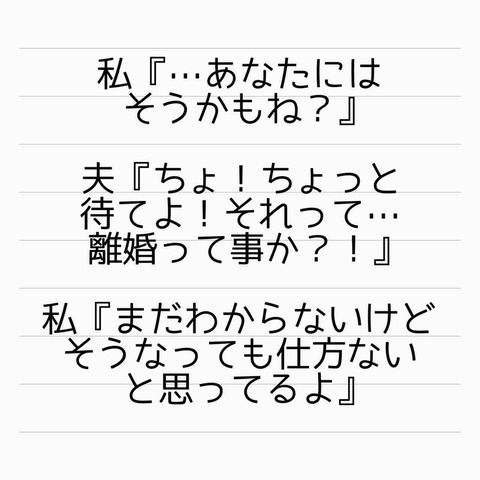 私『…あなたには
そうかもね？』
夫『ちょ！ちょっと
待てよ！それって…
離婚って事か？！』
私『まだわからないけど
そうなっても仕方ない
と思ってるよ』